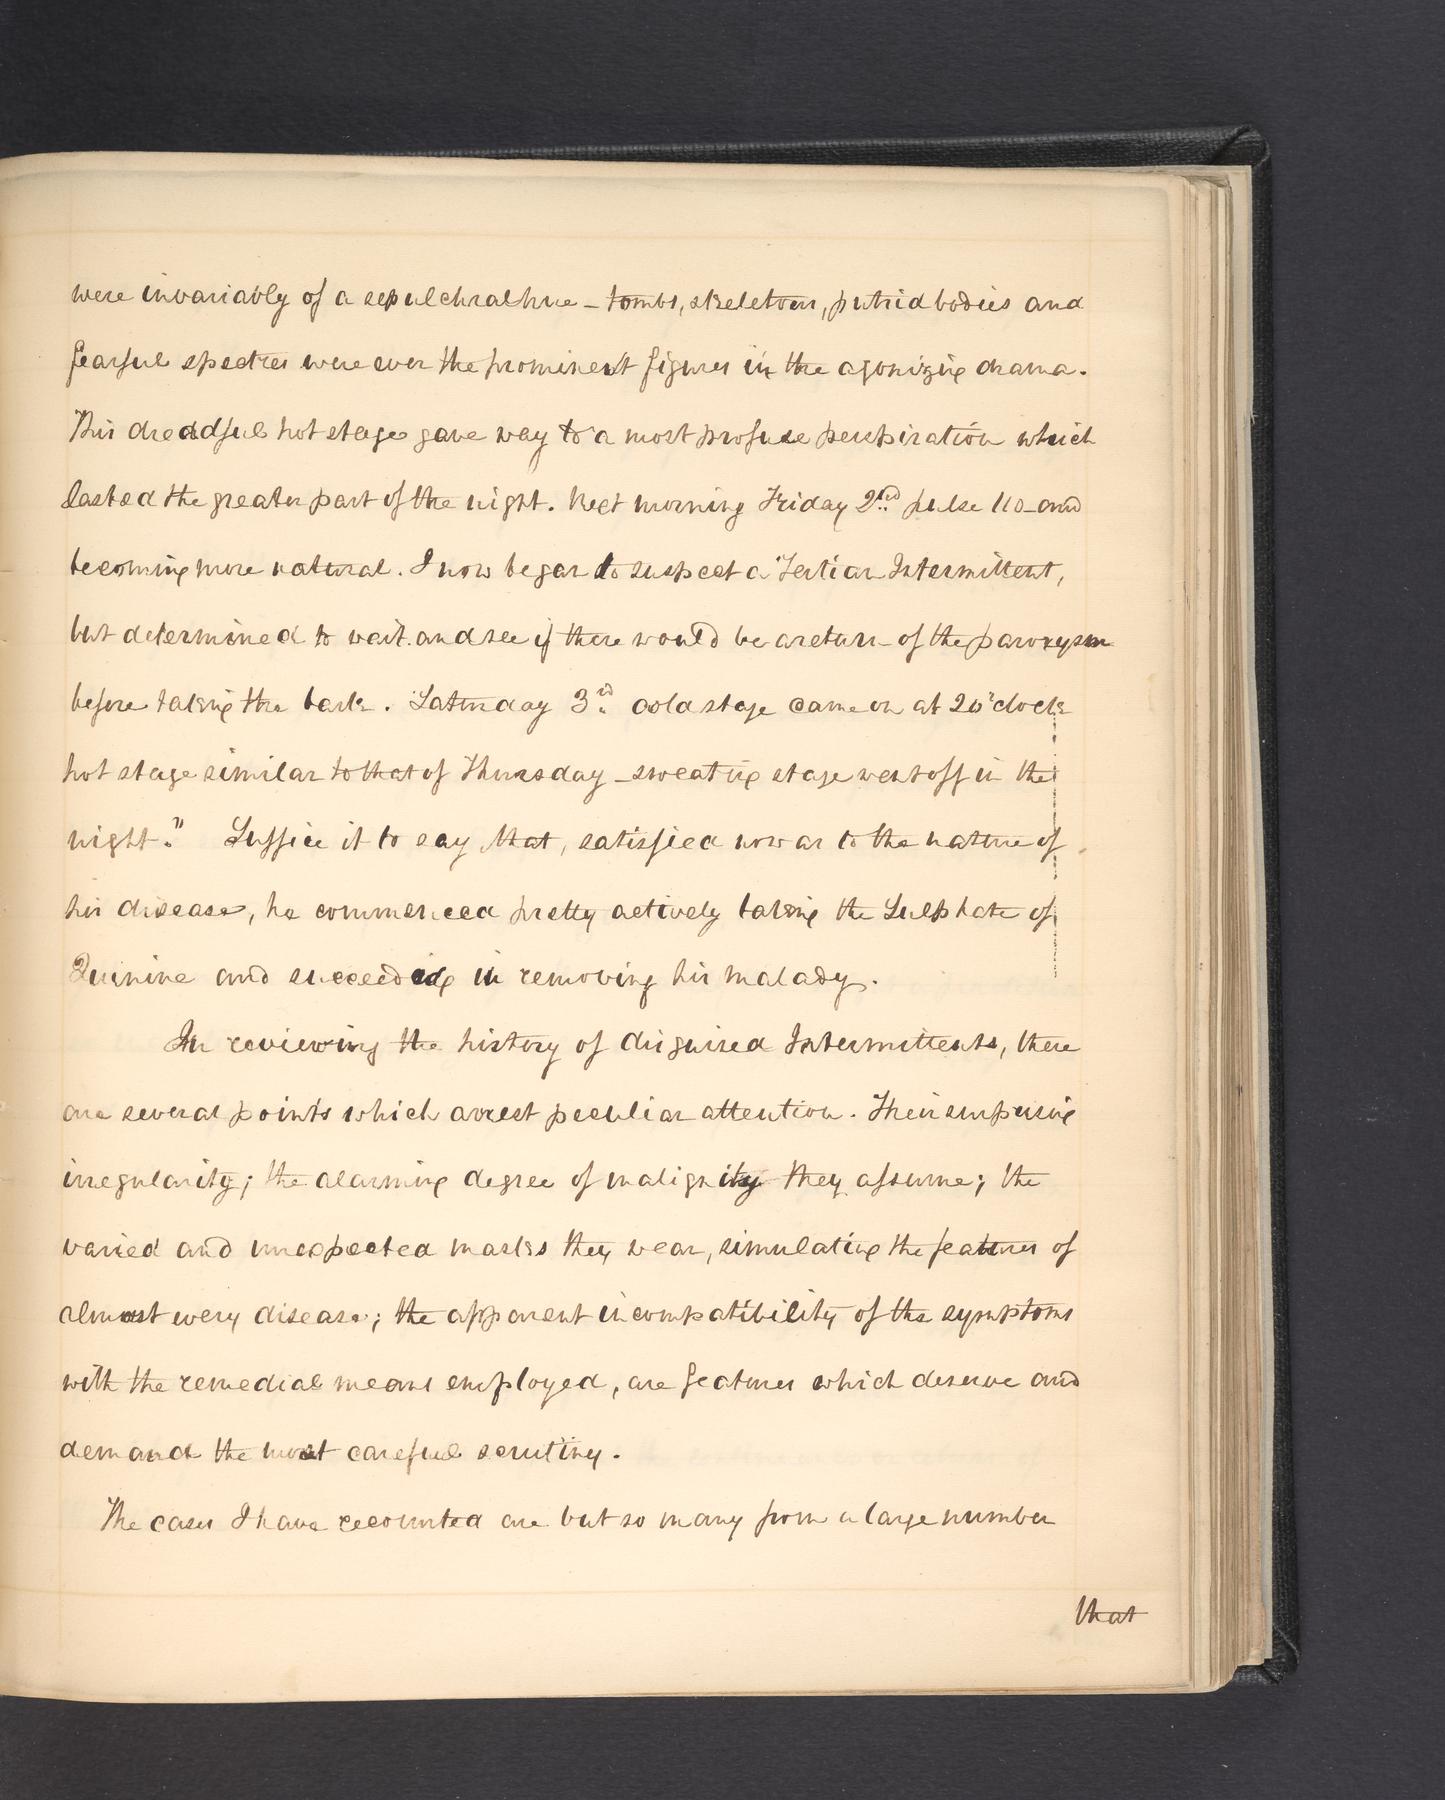 were invariably of a sepulchral hue - tombs, skeletons, putrid bodies and
fearful spectres were ever the prominent figures in the agonizing drama.
This dreadful hot stage gave way to a most profuse perspiration which
lasted the greater part of the night. Next morning Friday 2nd pulse 110 - and
becoming more natural. I now began to suspect a Tertian Intermittent,
but determined to wait and see if there would be a return of the paroxysm
before taking the bark. Saturday 3rd cold stage came on at 2 o'clock
hot stage similar to that of Thursday - sweating stage went off in the
night." Suffice it to say that, satisfied now as to the nature of
his disease, he commenced pretty actively taking the Sulphate of
Quinine and succeeding in removing his malady.
In reviewing the history of disguised Intermittents, there
are several points which arrest peculiar attention. Their surprising
irregularity; the alarming degree of malignity they assume; the
varied and unexpected masks they wear, simulating the features of
almost every disease; the apparent incompatibility of the symptoms
with the remedial means employed, are features which deserve and
demand the most careful scrutiny.
The cases I have recounted are but so many from a large number
that